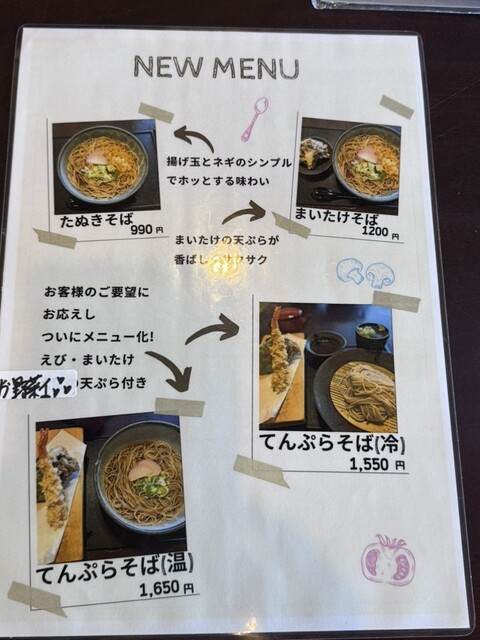 NEW MENU
揚げ玉とネギのシンプル
でホッとする味わい
たぬきそば
990 円
まいたけそば
1200 円
まいたけの天ぷらが
香ばしくサクサク
お客様のご要望に
お応えし
ついにメニュー化!
えび・まいたけ
の天ぷら付き
野菜
てんぷらそば(冷)
1,550 円
てんぷらそば(温)
1,650 円